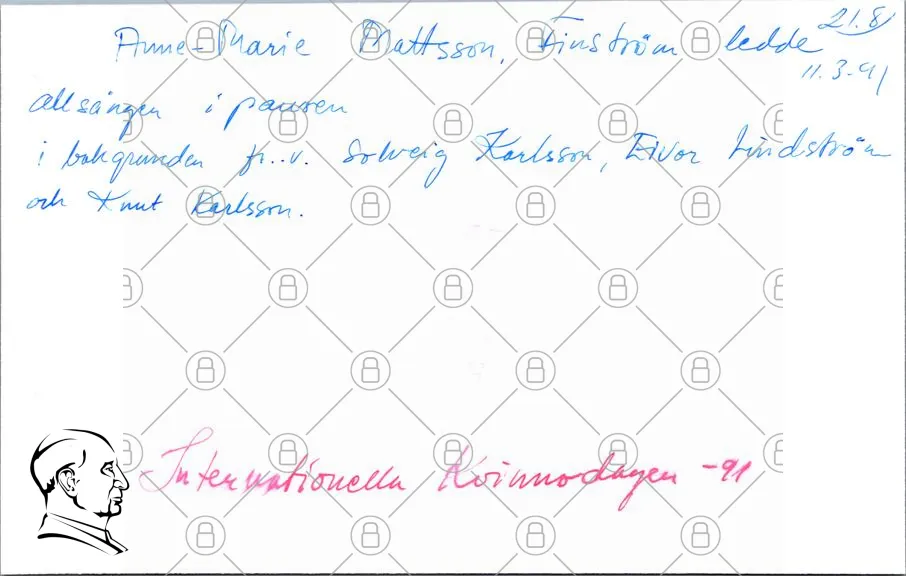 Anne-Marie Mattsson, Finström ledde 21.8
11.3.91
allsången i pausen
i bakgrunden fr..v. Solveig Karlsson, Eivor Lindström
och Knut Karlsson.
Internationella Kvinnodagen -91